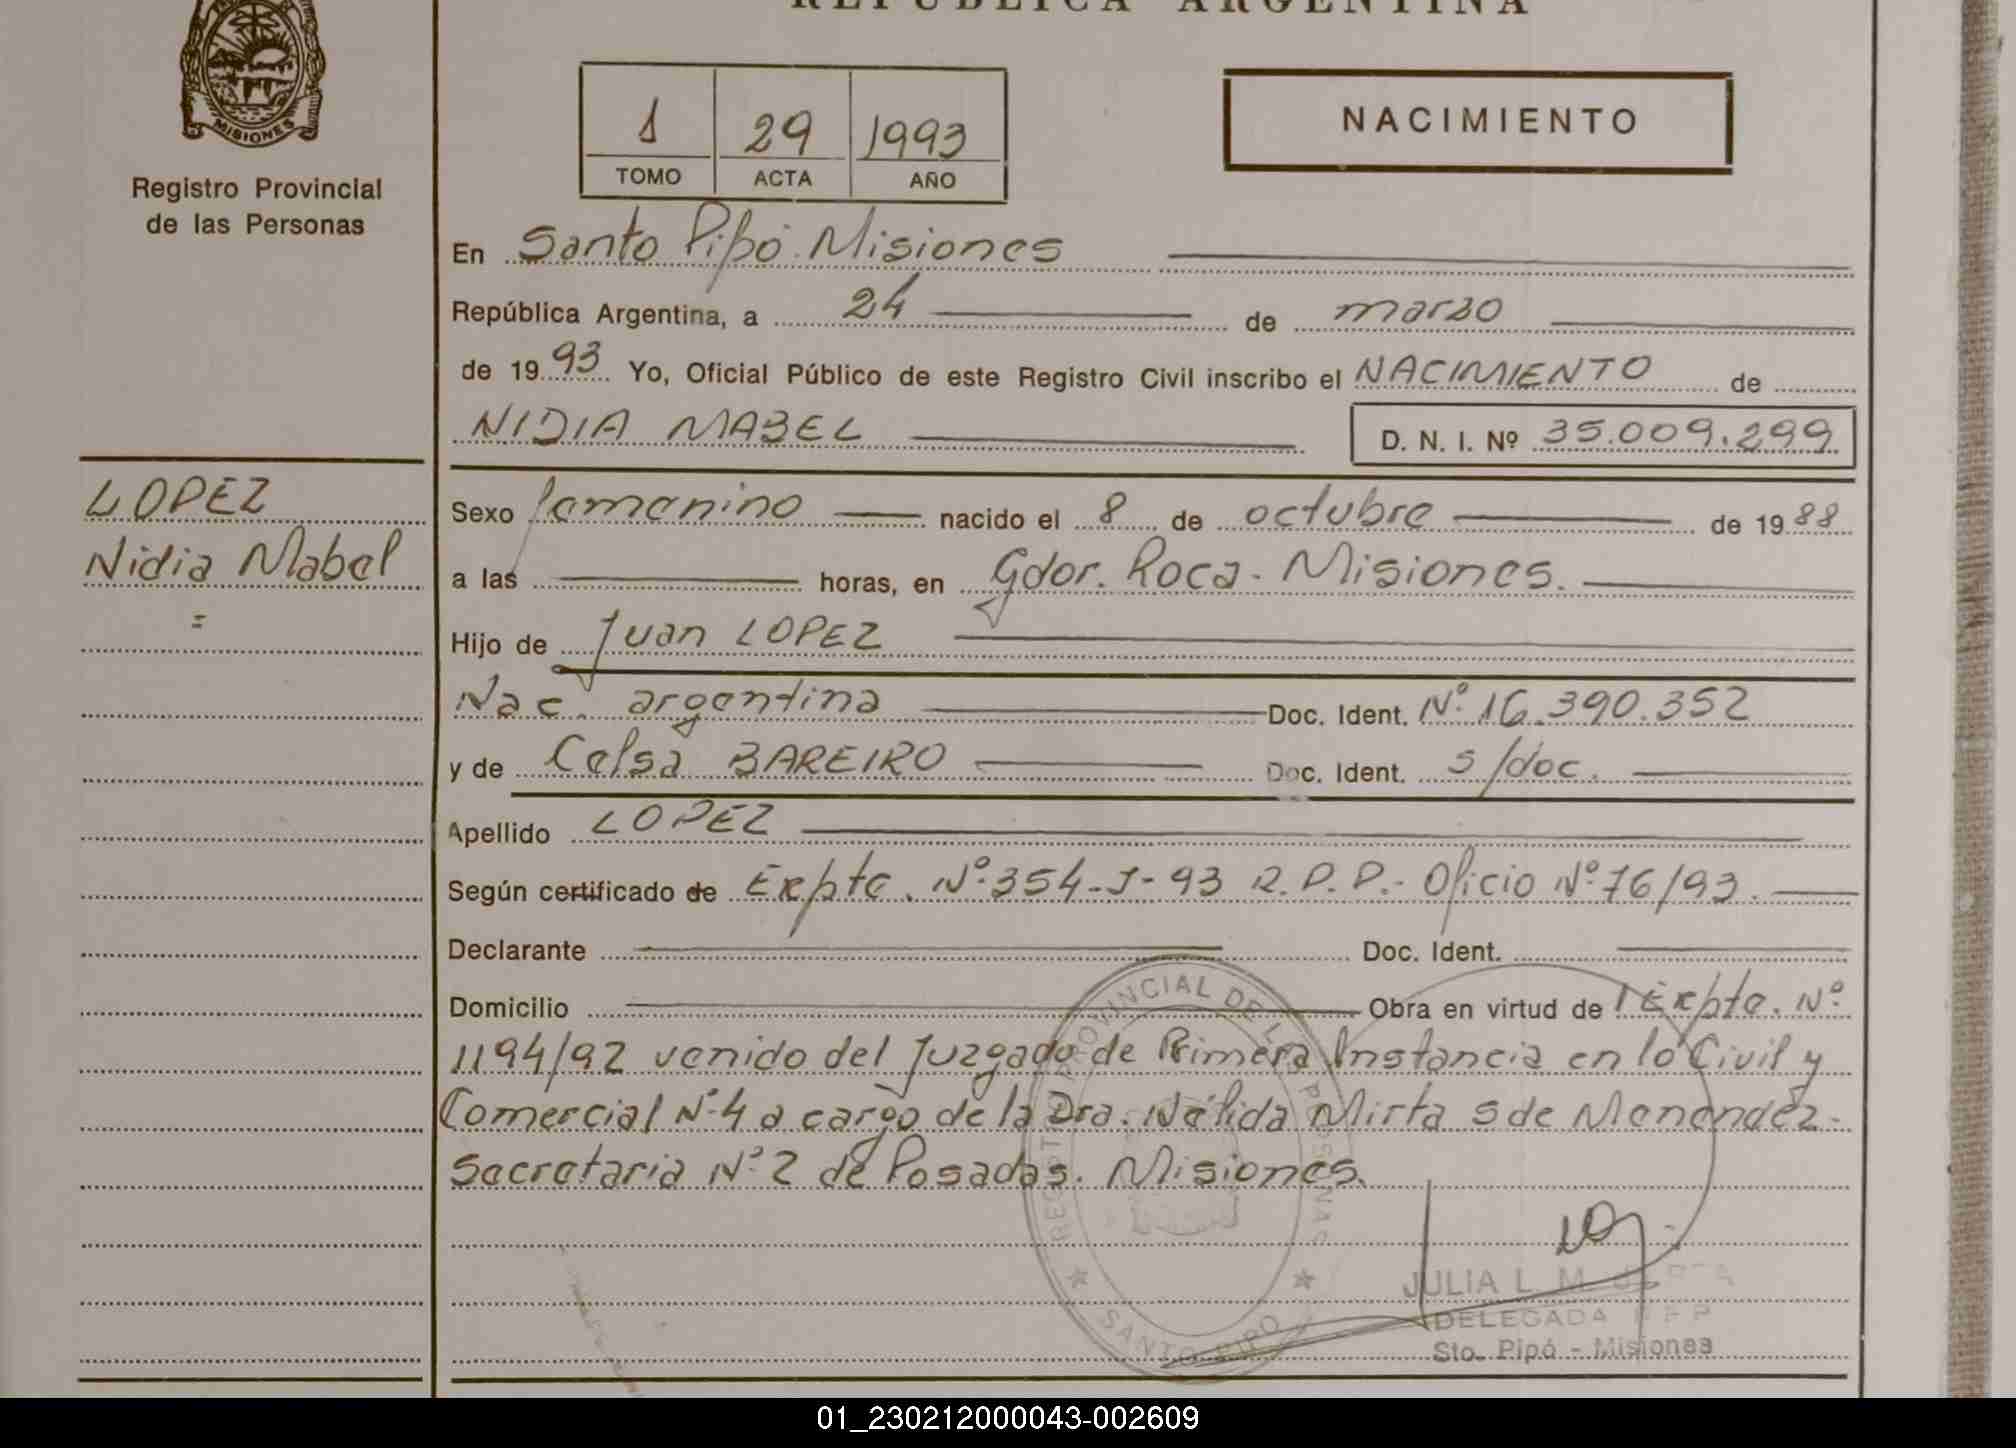 REPUBLICA ARGENTINA
MISIONES
Registro Provincial
de las Personas
1 29 1993
TOMO ACTA AÑO
NACIMIENTO
En Santo Pipó. Misiones
República Argentina, a 24 de marzo
de 1993 Yo, Oficial Público de este Registro Civil inscribo el NACIMIENTO de
NIDIA MABEL D. N. I. Nº 35.009.299
LOPEZ
Nidia Mabel
=
Sexo femenino nacido el 8 de octubre de 1988
a las horas, en Gdor. Roca. Misiones.
Hijo de Juan LOPEZ
Nac. argentina Doc. Ident. Nº 16.390.352
y de Celsa BAREIRO Doc. Ident. s/doc.
Apellido LOPEZ
Según certificado de Expte. Nº 354-J-93 R.P.P.- Oficio Nº 76/93.
Declarante Doc. Ident.
Domicilio Obra en virtud de Expte. Nº
1194/92 venido del Juzgado de Primera Instancia en lo Civil y
Comercial Nº 4 a cargo de la Dra. Nélida Mirta S de Menendez-
Secretaria Nº 2 de Posadas. Misiones.
REGISTRO PROVINCIAL DE LAS PERSONAS
SANTO PIPO
JULIA L. M.
DELEGADA
Sto. Pipó - Misiones
01_230212000043-002609